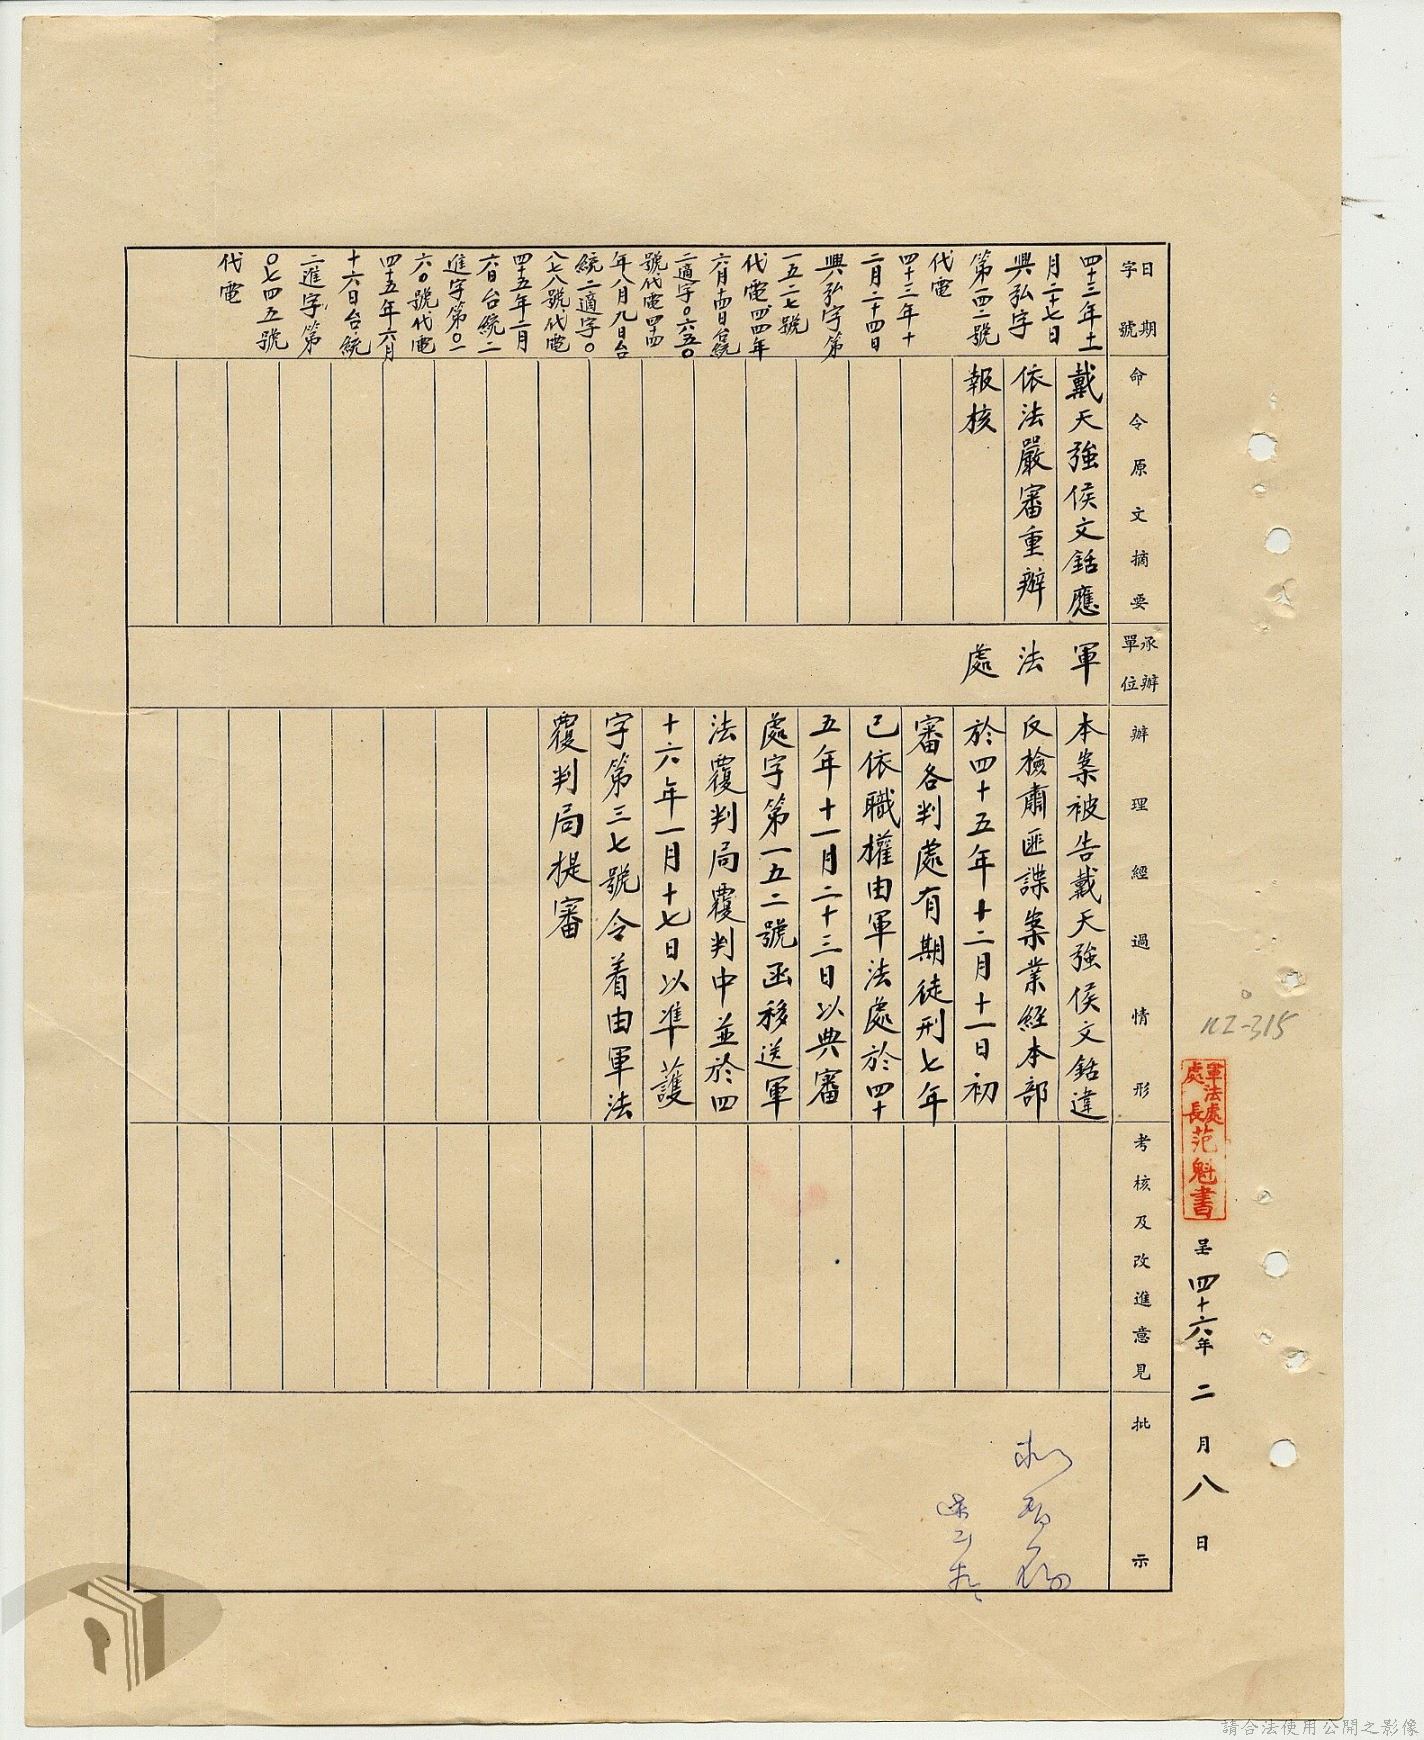 日期
字號
四十三年十一
月二十七日
興弘字
第一四二號
代電
四十三年十
二月二十四日
興弘字第
一五二七號
代電四四年
六月十四日台統
二適字0六五0
號代電四四
年八月九日台
統二適字0
八七八號代電
四十五年二月
六日台統二
進字第0一
六0號代電
四十五年六月
十六日台統
二進字第
0七四五號
代電
命令原文摘要
戴天強侯文銛應
依法嚴審重辦
報核
承辦
單位
軍
法
處
辦理經過情形
本案被告戴天強侯文銛違
反檢肅匪諜案業經本部
於四十五年十二月十一日初
審各判處有期徒刑七年
已依職權由軍法處於四十
五年十一月二十三日以典審
處字第一五二號函移送軍
法覆判局覆判中並於四
十六年一月十七日以準護
字第三七號令着由軍法
覆判局提審
考核及改進意見
批示
n2-315
軍法處
處長
范魁書
呈 四十六年 二 月 八 日
請合法使用公開之影像